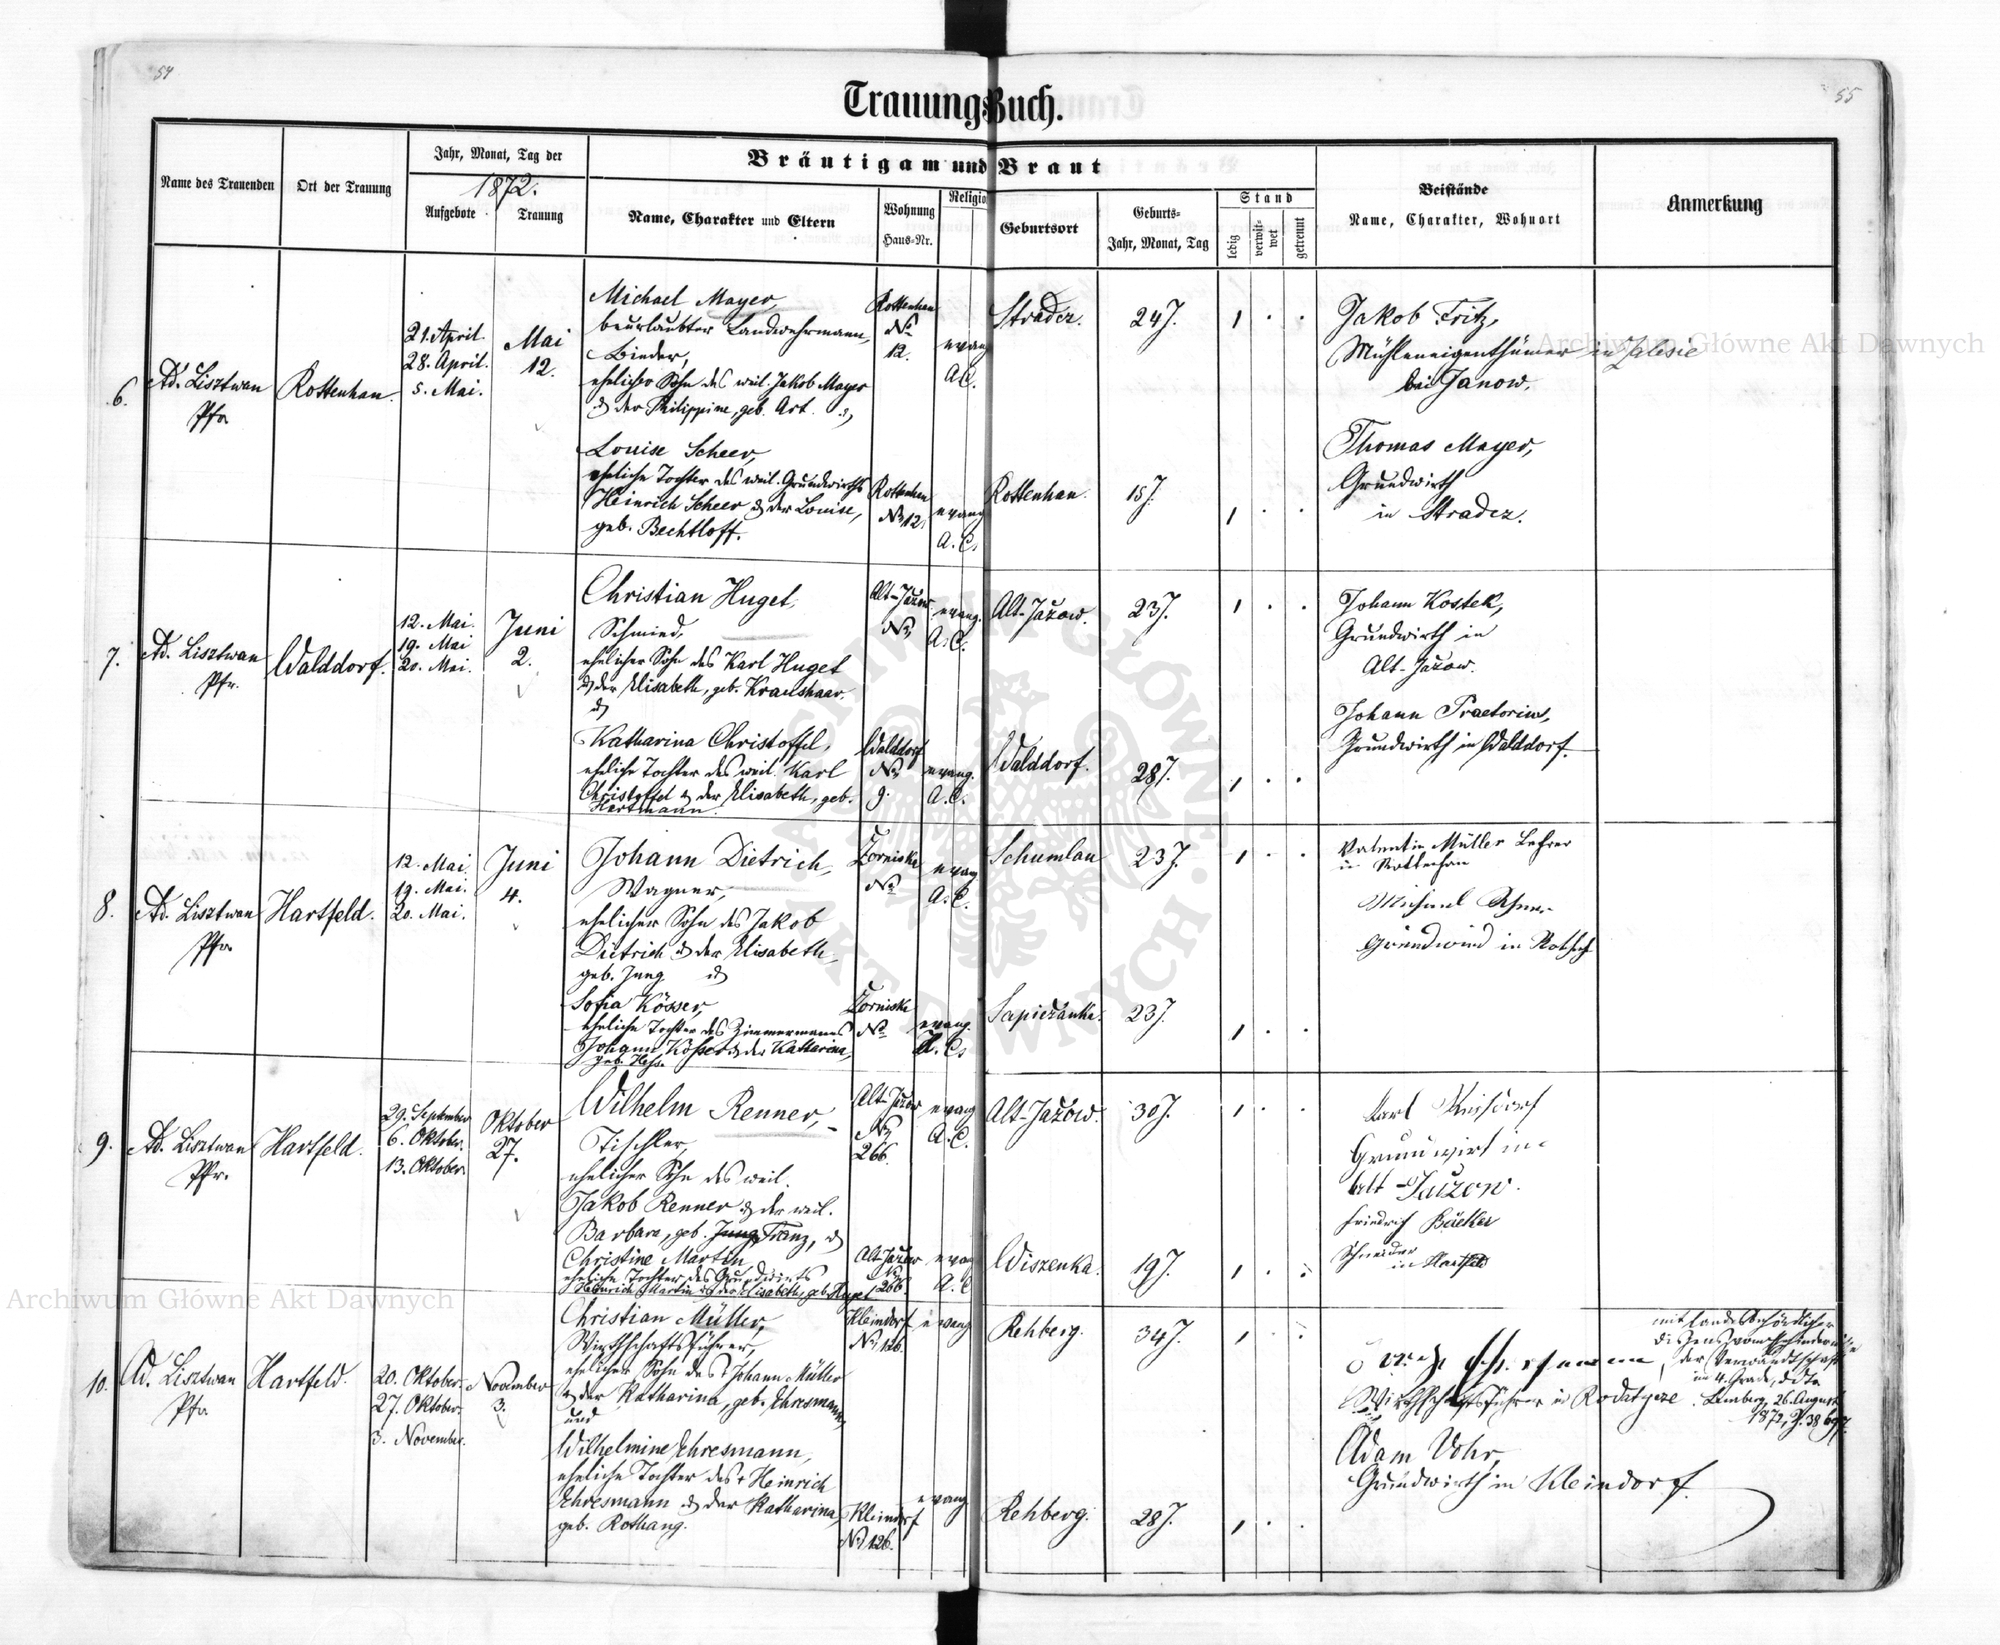 54
55
Trauungs Buch.
Name des Trauenden
Ort der Trauung
Jahr, Monat, Tag der
1872.
Aufgebote
Trauung
Bräutigam und Braut
Name, Charakter und Eltern
Wohnung
Haus-Nr.
Religio
Geburtsort
Geburts-
Jahr, Monat, Tag
Stand
ledig
verwit-
wet
getrennt
Beistände
Name, Charakter, Wohnort
Anmerkung
6.
Ad. Lisztwan
Pfr
Rottenhan.
21. April.
28. April.
5. Mai.
Mai
12.
Michael Mayer,
beurlaubter Landwehrmann,
ehelicher Sohn des weil. Jakob Mayer
& der Philippine, geb. Art. &
Rottenhan
No
12.
evang
A.C.
Stradcz.
24 J.
1 . .
Jakob Fritz,
Mühleneigenthümer in Zalesie
bei Janow.
Louise Scheer,
eheliche Tochter des weil. Grundwirths
Heinrich Scheer & der Louise,
geb. Bechtloff.
Rottenhan
No 12.
evang
A.C.
Rottenhan.
15 J.
1 . .
Thomas Mayer,
Grundwirth
in Stradcz.
7.
Ad. Lisztwan
Pfr.
Walddorf.
12. Mai.
19. Mai
20. Mai.
Juni
2.
Christian Huget,
Schmied,
ehelicher Sohn des Karl Huget
& der Elisabeth, geb. Kraushaar.
&
Alt-Jazow
No
evang.
A.C.
Alt-Jazow.
23 J.
1 . .
Johann Kostek,
Grundwirth in
Alt-Jazow.
Katharina Christoffel,
eheliche Tochter des weil. Karl
Christoffel & der Elisabeth, geb.
Hartmann.
Walddorf
No
9.
evang.
A.C.
Walddorf.
28 J.
1 . .
Johann Praetorius,
Grundwirth in Walddorf.
8.
Ad. Lisztwan
Pfr
Hartfeld.
12. Mai.
19. Mai.
20. Mai.
Juni
4.
Johann Dietrich,
Wagner,
ehelicher Sohn des Jakob
Dietrich & der Elisabeth,
geb. Jung &
Zorniska
No
evang
A.C.
Schumlau
23 J.
1 . .
Valentin Müller Lehrer
in Rottenhan
Sofia Kösser,
eheliche Tochter des Zimmermanns
Johann Kösser & der Katharina,
geb. Hess.
Zorniska
No
evang.
A.C.
Sapiezanka.
23 J.
1 . .
Michael
Grundwird in
9.
Ad. Lisztwan
Pfr.
Hartfeld.
29. September
6. Oktober.
13. Oktober.
Oktober
27.
Wilhelm Renner,
Tischler,
ehelicher Sohn des weil.
Jakob Renner & der weil.
Barbara, geb. Jung Franz, &
Alt-Jazow
No
266.
evang
A.C.
Alt-Jazow.
30 J.
1 . .
Karl
Grunwirt in
Alt-Jazow.
Christine Martin,
eheliche Tochter des Grundwirts
Heinrich Martin & der Elisabeth, geb. Huget
Alt-Jazow
No
266.
evang
A.C
Wiszenka.
19 J.
1 . .
Friedrich Becker
Schneider
in Hartfeld
10.
Ad. Lisztwan
Pfr
Hartfeld.
20. Oktober.
27. Oktober.
3. November.
November
3.
Christian Müller,
Wirthschaftsführer,
ehelicher Sohn des † Johann Müller
& der Katharina, geb. Ehresmann,
und
Kleindorf
No 126.
evang
Rehberg.
34 J.
1 . .
Wirthschaftsführer in Rodatycze.
Wilhelmine Ehresmann,
eheliche Tochter des † Heinrich
Ehresmann & der Katharina,
geb. Rothang.
Kleindorf
No 126.
evang
Rehberg.
28 J.
1 . .
Adam Vohr,
Grundwirth in Kleindorf.
mit landesbehördlicher
Dispens vom Ehehindernisse
der Verwandtschaft
im 4. Grade, ddto
Lemberg, 26. August
1872, Z. 38
Archiwum Główne Akt Dawnych
Archiwum Główne Akt Dawnych
ARCHIWUM GŁÓWNE AKT DAWNYCH